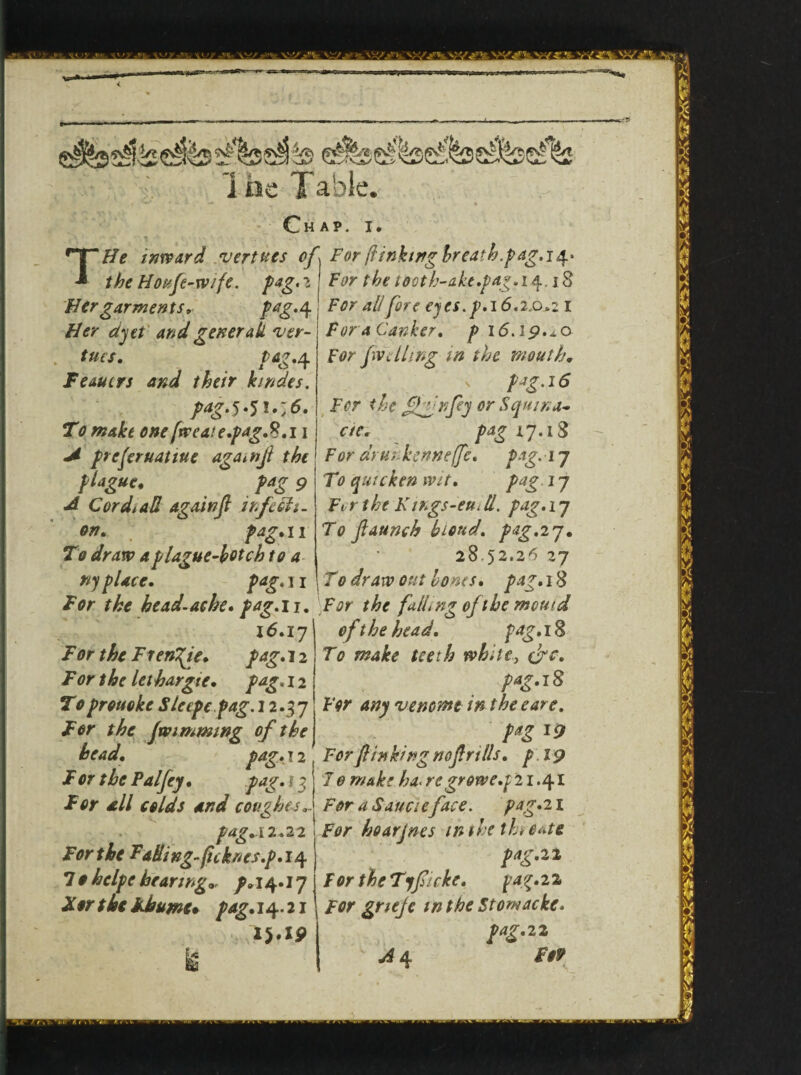 The Table.
CHAP. I.
THe inward vertues of
the House-wife. pag.2
Her garments. pag.4
Her dyet and generall ver-
tues. pag.4
Feauers and their kindes.
pag.5.51.36.
To make one sweate.pag.8.11
A preseruatiue against the
plague. pag 9
A Cordiall against infecti-
on. pag.11
To draw a plague-botch to a-
ny place. pag.11
For the head-ache. pag.11.
16.17
For the Frenzie. pag.12
For the lethargie. pag.12
To prouoke Sleepe pag.12.37
For the swimming of the
head. pag.12
For the Palsey. pag.13
For all colds and coughes.
pag.12.22
For the Falling-sicknes.p.14
To helpe hearing. p.14.17
For the Rhume. pag.14.21
15.19
For stinking breath.pag.14.
For the tooth-ake.pag.14.18
For all sore eyes.p.16.20.21
For a Canker. p 16.19.20
For swelling in the mouth.
pag.16
For the Quinsey or Squina-
cie. pag 17.18
For drunkennesse. pag.17
To quicken wit. pag.17
For the Kings-euill. pag.17
To staunch bloud. pag.27.
28.52.26 27
To draw out bones. pag.18
For the falling of the mould
of the head. pag.18
To make teeth white, &c.
pag.18
For any venome in the eare.
pag 19
For stinking nostrills. p.19
To make haire growe.p21.41
For a Saucie face. pag.21
For hoarsnes in the threate
pag.22
For the Tysicke. pag.22
For griefe in the Stomacke.
pag.22
A4 For